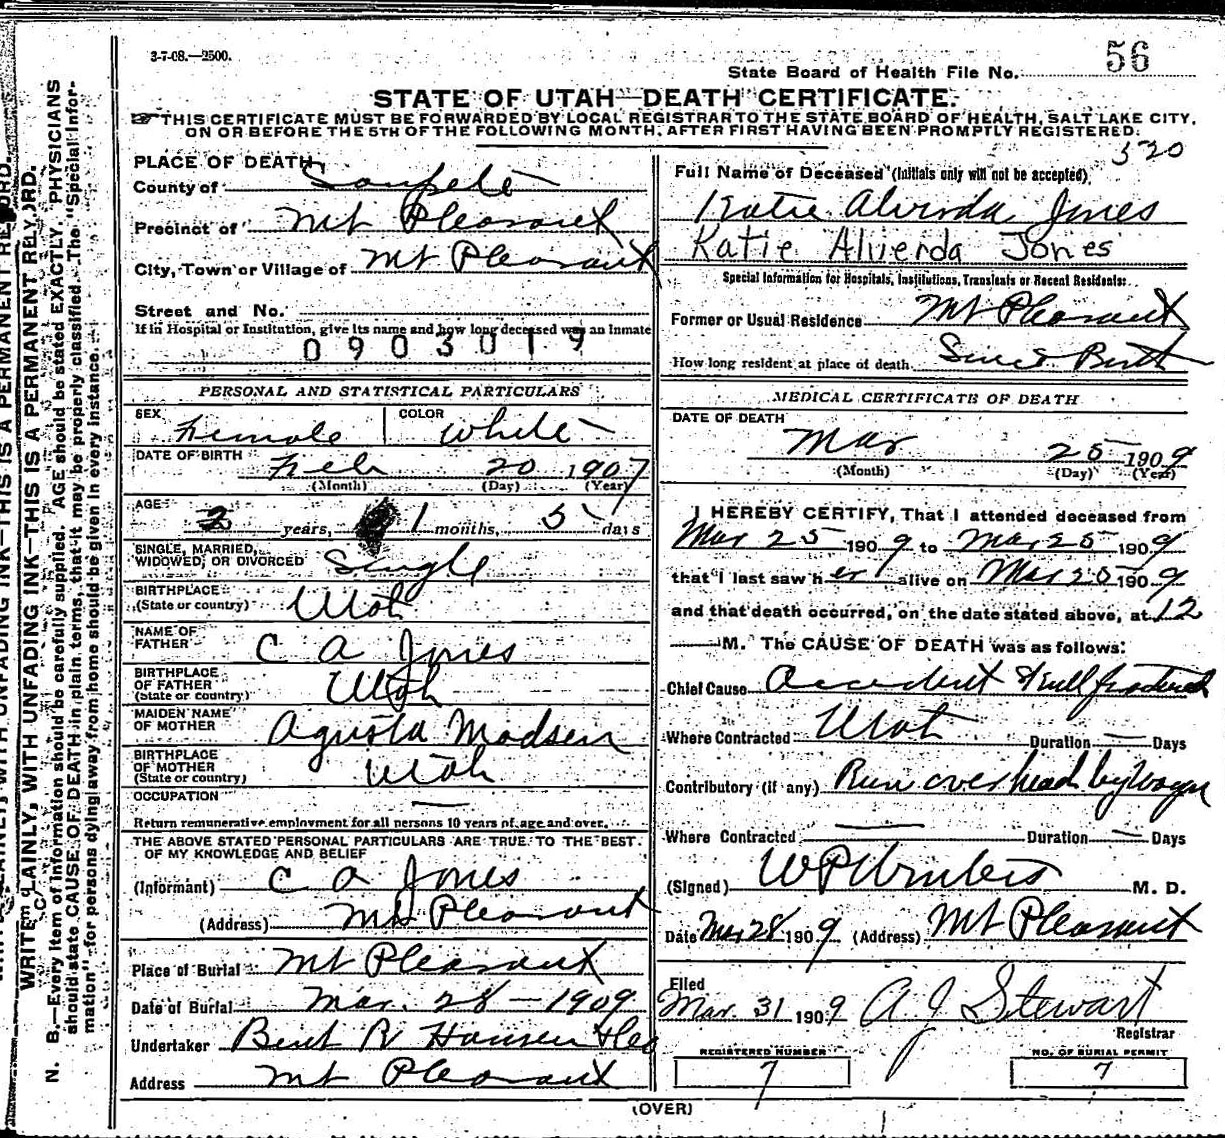 3-7-08.—2500.
State Board of Health File No. 56
STATE OF UTAH—DEATH CERTIFICATE.
THIS CERTIFICATE MUST BE FORWARDED BY LOCAL REGISTRAR TO THE STATE BOARD OF HEALTH, SALT LAKE CITY,
ON OR BEFORE THE 5TH OF THE FOLLOWING MONTH, AFTER FIRST HAVING BEEN PROMPTLY REGISTERED.
520
PLACE OF DEATH
County of Sanpete
Precinct of Mt Pleasant
City, Town or Village of Mt Pleasant
Street and No.
If in Hospital or Institution, give its name and how long deceased was an Inmate
0903019
PERSONAL AND STATISTICAL PARTICULARS
SEX Female COLOR White
DATE OF BIRTH Feb 20 1907
(Month) (Day) (Year)
AGE 2 years, 1 months, 5 days
SINGLE, MARRIED,
WIDOWED, OR DIVORCED Single
BIRTHPLACE
(State or country) Utah
NAME OF
FATHER C A Jones
BIRTHPLACE
OF FATHER
(State or country) Utah
MAIDEN NAME
OF MOTHER Agusta Madsen
BIRTHPLACE
OF MOTHER
(State or country) Utah
OCCUPATION —
Return remunerative employment for all persons 10 years of age and over.
THE ABOVE STATED PERSONAL PARTICULARS ARE TRUE TO THE BEST
OF MY KNOWLEDGE AND BELIEF
(Informant) C A Jones
(Address) Mt Pleasant
Place of Burial Mt Pleasant
Date of Burial Mar. 28 — 1909
Undertaker Bent R Hansen
Address Mt Pleasant
Full Name of Deceased (Initials only will not be accepted)
Katie Alvirda Jones
Katie Alvierda Jones
Special Information for Hospitals, Institutions, Transients or Recent Residents:
Former or Usual Residence Mt Pleasant
How long resident at place of death Since Birth
MEDICAL CERTIFICATE OF DEATH
DATE OF DEATH
Mar 25 1909
(Month) (Day) (Year)
I HEREBY CERTIFY, That I attended deceased from
Mar 25 1909 to Mar 25 1909
that I last saw her alive on Mar 25 1909
and that death occurred, on the date stated above, at 12
M. The CAUSE OF DEATH was as follows:
Chief Cause Accident Skull fractured
Where Contracted Utah Duration — Days
Contributory (if any) Run over head by Wagon
Where Contracted — Duration — Days
(Signed) M. D.
Date Mar 28 1909 (Address) Mt Pleasant
Filed
Mar. 31 1909 A J Stewart
Registrar
REGISTERED NUMBER
7
NO. OF BURIAL PERMIT
7
(OVER)
WRITE PLAINLY, WITH UNFADING INK—THIS IS A PERMANENT RECORD.
N. B.—Every item of Information should be carefully supplied. AGE should be stated EXACTLY. PHYSICIANS
should state CAUSE OF DEATH in plain terms, that it may be properly classified. The "Special Infor-
mation" for persons dying away from home should be given in every instance.